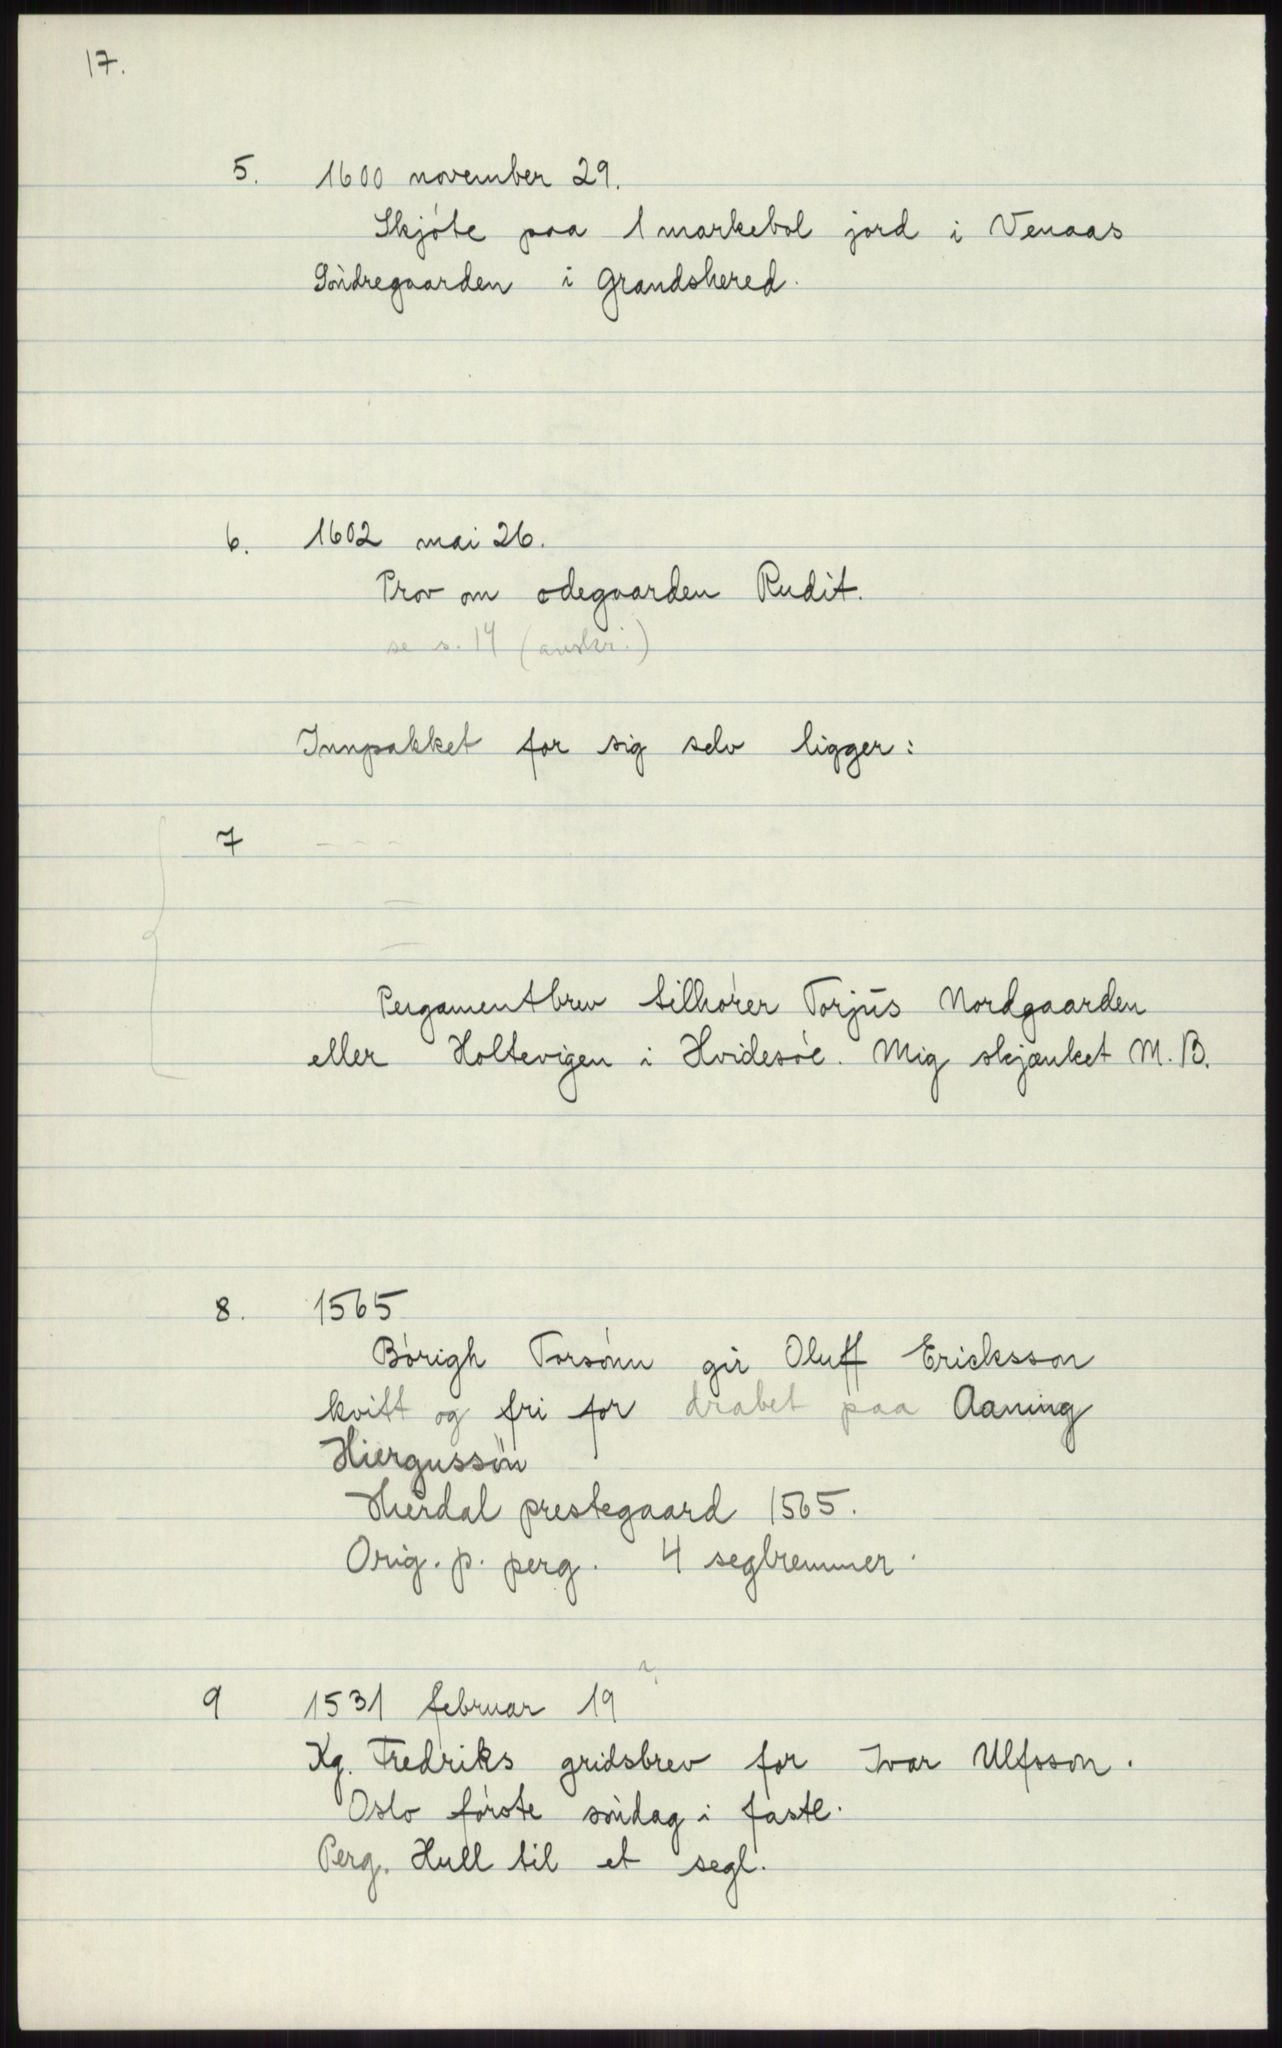 17.
5. 1600 november 29.
Skjóte paa 1 markebol jord i Venaas
Sóndregaarden i Grandshered.
6. 1602 mai 26.
Prov om ødegaarden Rudit.
se s. 14 (avskr.)
Innpakket for sig selv ligger:
7 - - -
Pergamentbrev tilhórer Torjus Nordgaarden
eller Holtevigen i Hvidesóe. Mig skjænket M.B.
8. 1565
Bórigh Torsónn gir Oluff Ericksson
kvitt og fri for drabet paa Aaning
Hiergussón
Hierdal prestegaard 1565.
Orig. p. perg. 4 seglremmer.
9 1531 februar 19 ?
Kg. Fredriks gridsbrev for Ivar Ulfsson.
Oslo fórste sóndag i faste.
Perg. Hull til et segl.